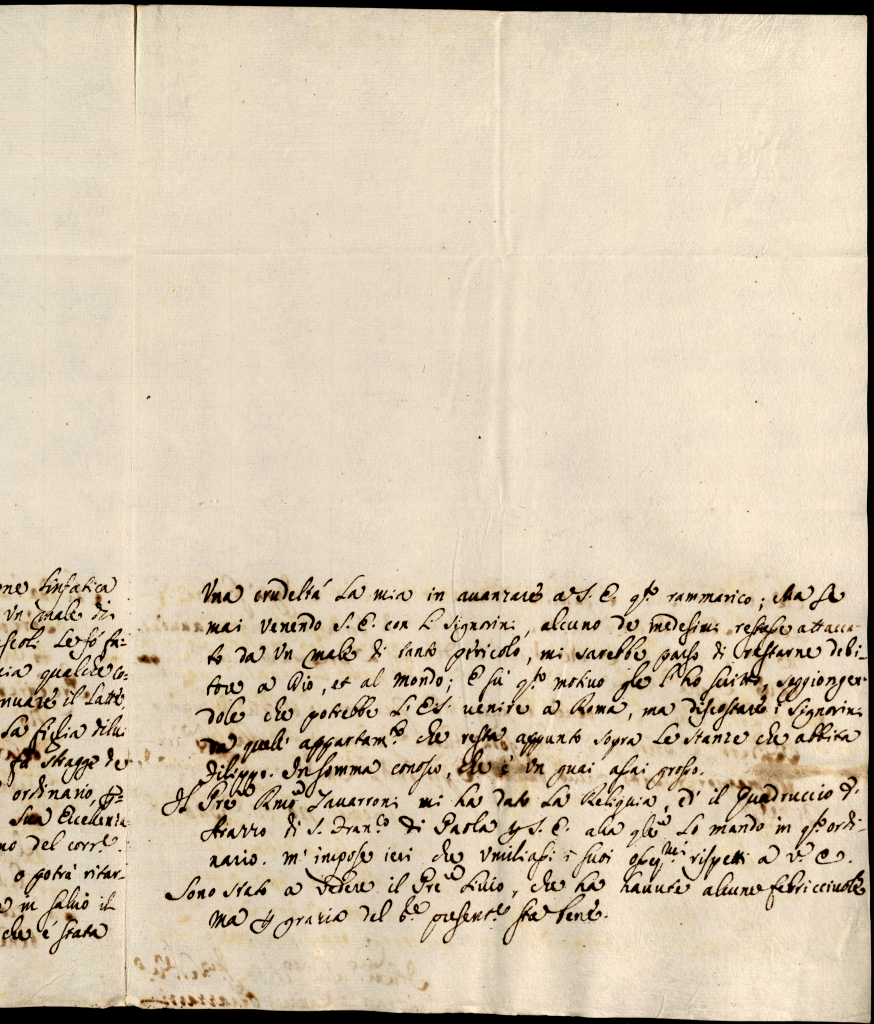 one linfatica
un male di
Le fò
qualche co-
il latte
la figlia
stragge de
ordinario,
Sua Eccellenza
mo del corr.e
o potrà ritar-
in salvo il
che è stata
Una crudeltà la mia in avanzare a S. E. q.to rammarico; Ma se
mai venendo S. E. con li Signorini, alcuno de medesimi restasse attacca-
to da un male di tanto pericolo, mi sarebbe parso di restarne debi-
tore a Dio, et al mondo; E su q.to motivo gle l'ho scritto, soggiongen-
dole che potrebbe L'E.S. venire a Roma, ma discostare i Signorini
da quell' appartam.to che resta appunto sopra le stanze che abbita
Filippo. In somma conosco, che è un guai assai grosso.
Il Pre R.mo Zavarroni mi ha dato la Reliquia, ed il Quadruccio d'
Arazzo di S. Fran.co di Paola p S. E. alla qle lo mando in q.to ordi-
nario. m'impose ieri che umiliassi i suoi osseq.mi rispetti a V. E.
Sono stato a vedere il Pre Lilio, che ha havute alcune febricciuole
ma p grazia del Sig.re presente.te sta bene.